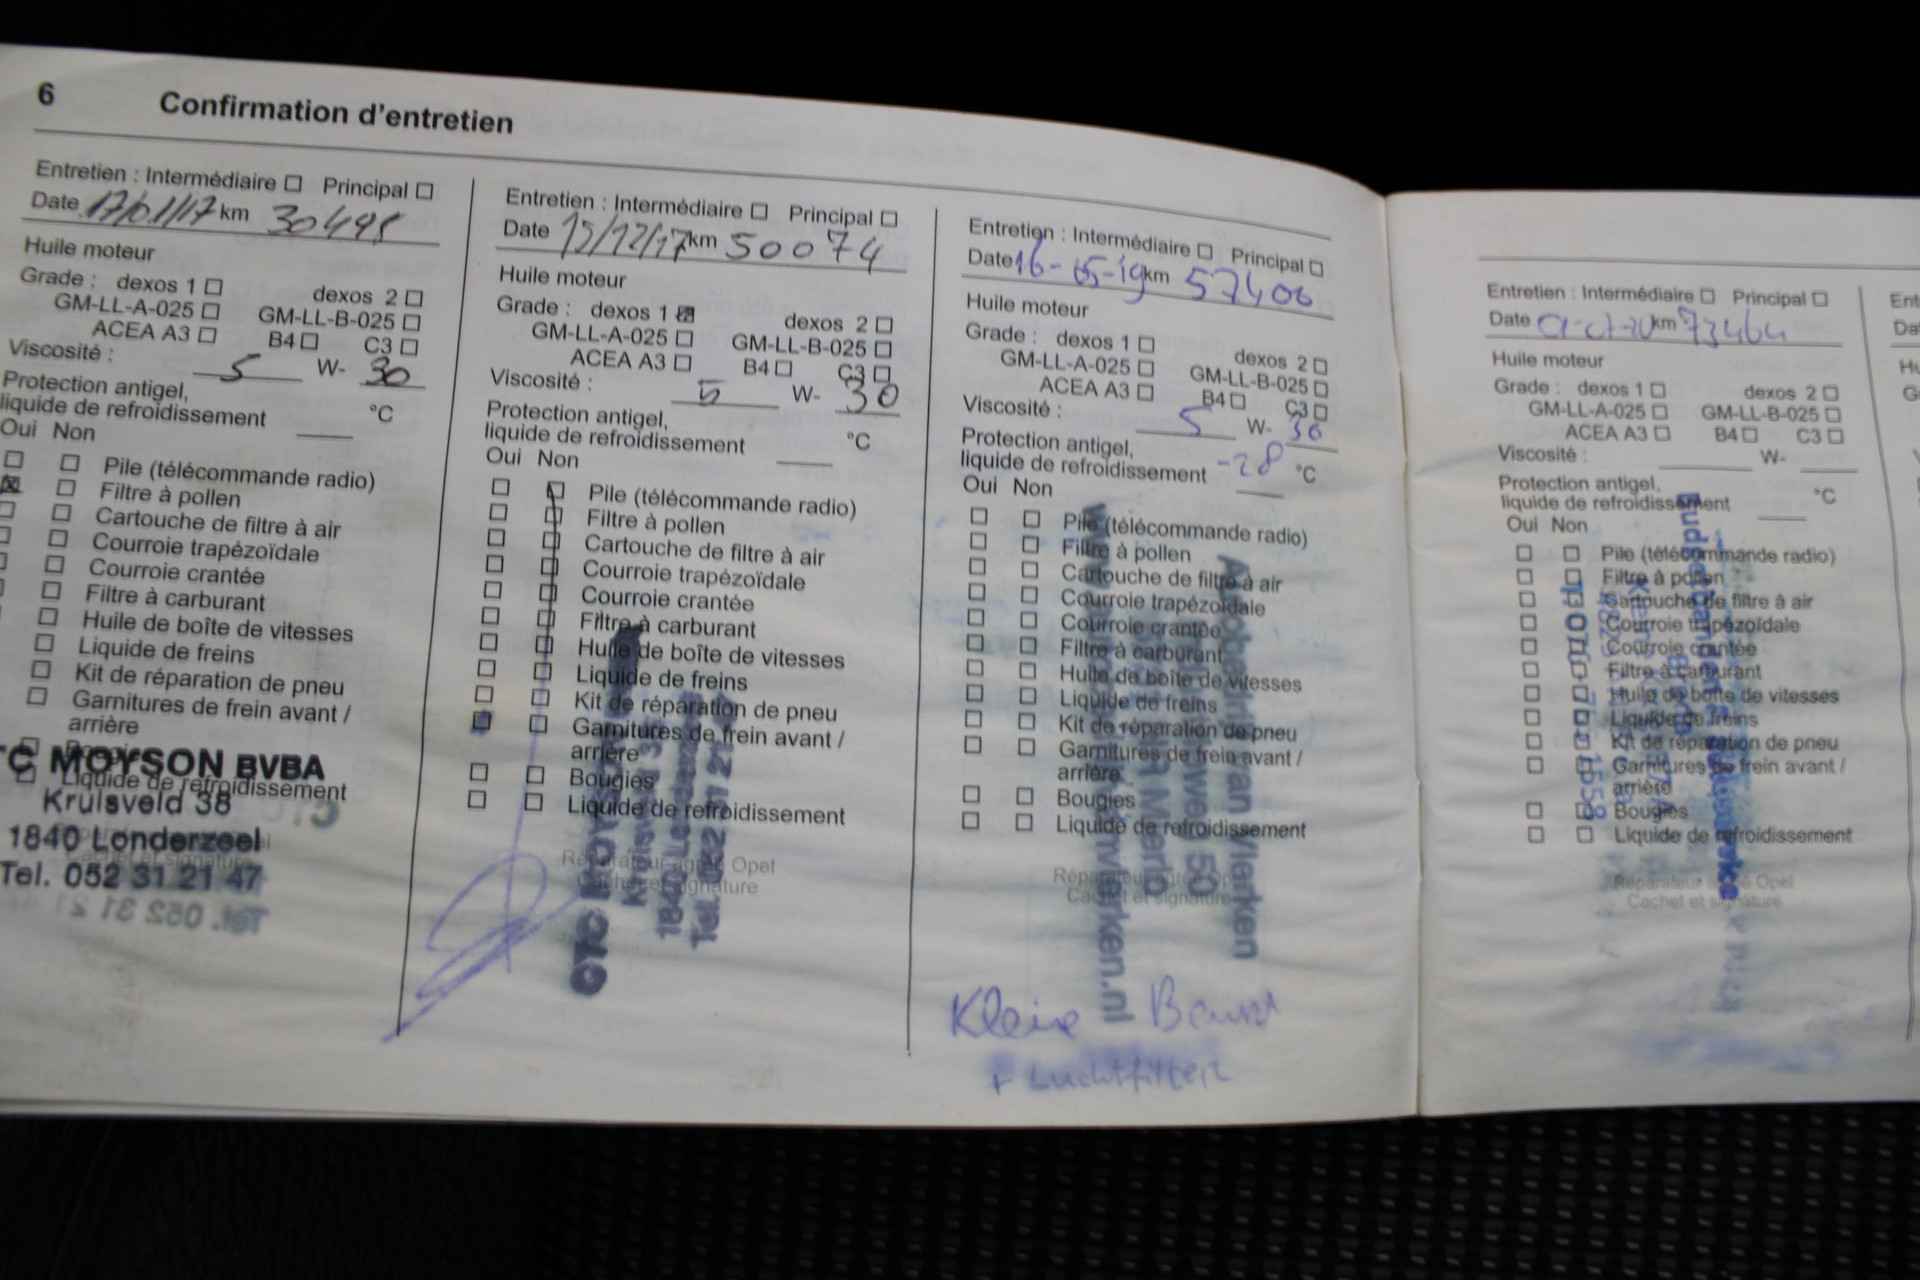 6 Confirmation d'entretien
Entretien : Intermédiaire Principal
Date 17/01/17 km 30498
Huile moteur
Grade : dexos 1 dexos 2
GM-LL-A-025 GM-LL-B-025
ACEA A3 B4 C3
Viscosité : 5 W- 30
Protection antigel,
liquide de refroidissement °C
Oui Non
Pile (télécommande radio)
Filtre à pollen
Cartouche de filtre à air
Courroie trapézoïdale
Courroie crantée
Filtre à carburant
Huile de boîte de vitesses
Liquide de freins
Kit de réparation de pneu
Garnitures de frein avant /
arrière
Liquide de refroidissement
MOYSON BVBA
Kruisveld 38
1840 Londerzeel
Tel. 052 31 21 47
Entretien : Intermédiaire Principal
Date 15/12/17 km 50074
Huile moteur
Grade : dexos 1 dexos 2
GM-LL-A-025 GM-LL-B-025
ACEA A3 B4 C3
Viscosité : 5 W- 30
Protection antigel,
liquide de refroidissement °C
Oui Non
Pile (télécommande radio)
Filtre à pollen
Cartouche de filtre à air
Courroie trapézoïdale
Courroie crantée
Filtre à carburant
Huile de boîte de vitesses
Liquide de freins
Kit de réparation de pneu
Garnitures de frein avant /
arrière
Bougies
Liquide de refroidissement
Réparateur agréé Opel
Cachet et signature
Entretien : Intermédiaire Principal
Date 16-05-19 km 57400
Huile moteur
Grade : dexos 1 dexos 2
GM-LL-A-025 GM-LL-B-025
ACEA A3 B4 C3
Viscosité : 5 W- 30
Protection antigel,
liquide de refroidissement -28 °C
Oui Non
Pile (télécommande radio)
Filtre à pollen
Cartouche de filtre à air
Courroie trapézoïdale
Courroie crantée
Filtre à carburant
Huile de boîte de vitesses
Liquide de freins
Kit de réparation de pneu
Garnitures de frein avant /
arrière
Bougies
Liquide de refroidissement
Réparateur agréé Opel
Cachet et signature
Kleine Beurt
+ Luchtfilter
Entretien : Intermédiaire Principal
Date km 73464
Huile moteur
Grade : dexos 1 dexos 2
GM-LL-A-025 GM-LL-B-025
ACEA A3 B4 C3
Viscosité : W-
Protection antigel,
liquide de refroidissement °C
Oui Non
Pile (télécommande radio)
Filtre à pollen
Cartouche de filtre à air
Courroie trapézoïdale
Courroie crantée
Filtre à carburant
Huile de boîte de vitesses
Liquide de freins
Kit de réparation de pneu
Garnitures de frein avant /
arrière
Bougies
Liquide de refroidissement
Réparateur agréé Opel
Cachet et signature